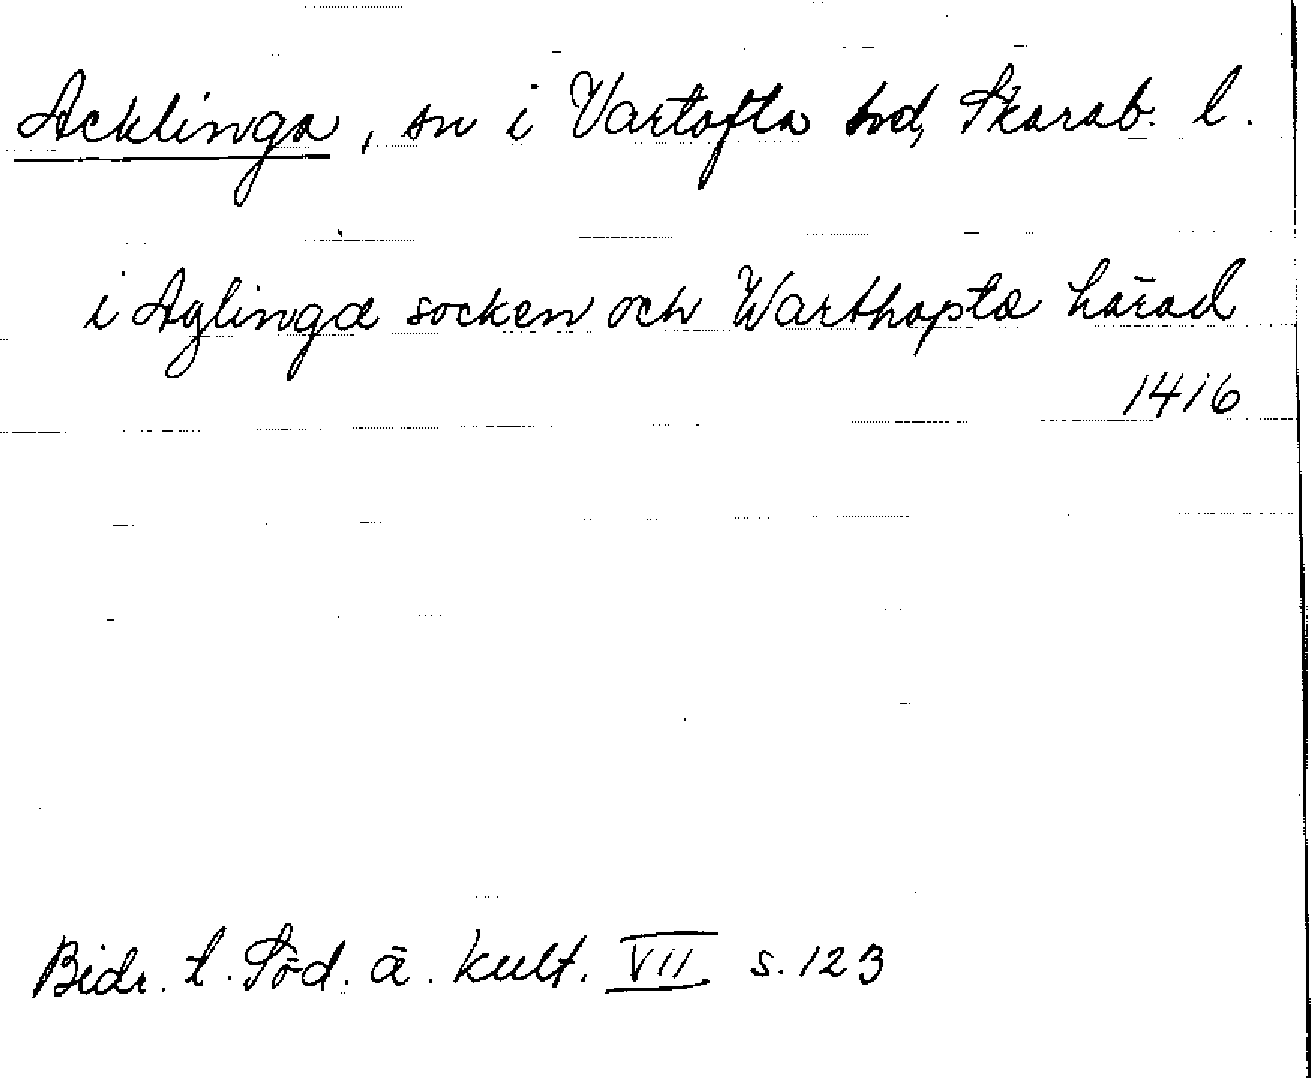 Acklinga, sn i Vartofta hd, Skarab. l.
i Aglinga socken och Warthopta härad
1416
Bidr. t. Söd. ä. kult. VII s. 123